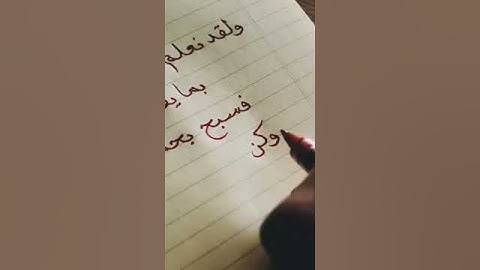 ولقد نعلم
بما
فسبح بحمد
وكن